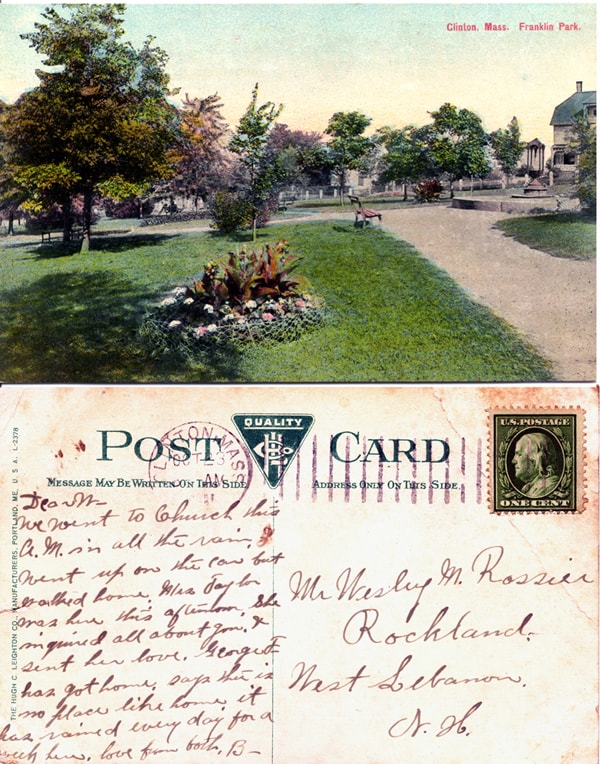 Clinton, Mass. Franklin Park.
POST CARD
QUALITY
HCL Co
MESSAGE MAY BE WRITTEN ON THIS SIDE
ADDRESS ONLY ON THIS SIDE.
CLINTON, MASS
U.S. POSTAGE
ONE CENT
THE HUGH C. LEIGHTON CO., MANUFACTURERS, PORTLAND, ME. U. S. A. L-2378
Dear W-
We went to Church this
A.M. in all the rain,
went up on the car but
walked home, Miss Taylor
was here this afternoon, she
inquired all about you, &
sent her love. George T
has got home, says there is
no place like home, it
has rained every day for a
week here, love from both, B-
Mr Wesley M. Rossier
Rockland.
West Lebanon.
N. H.